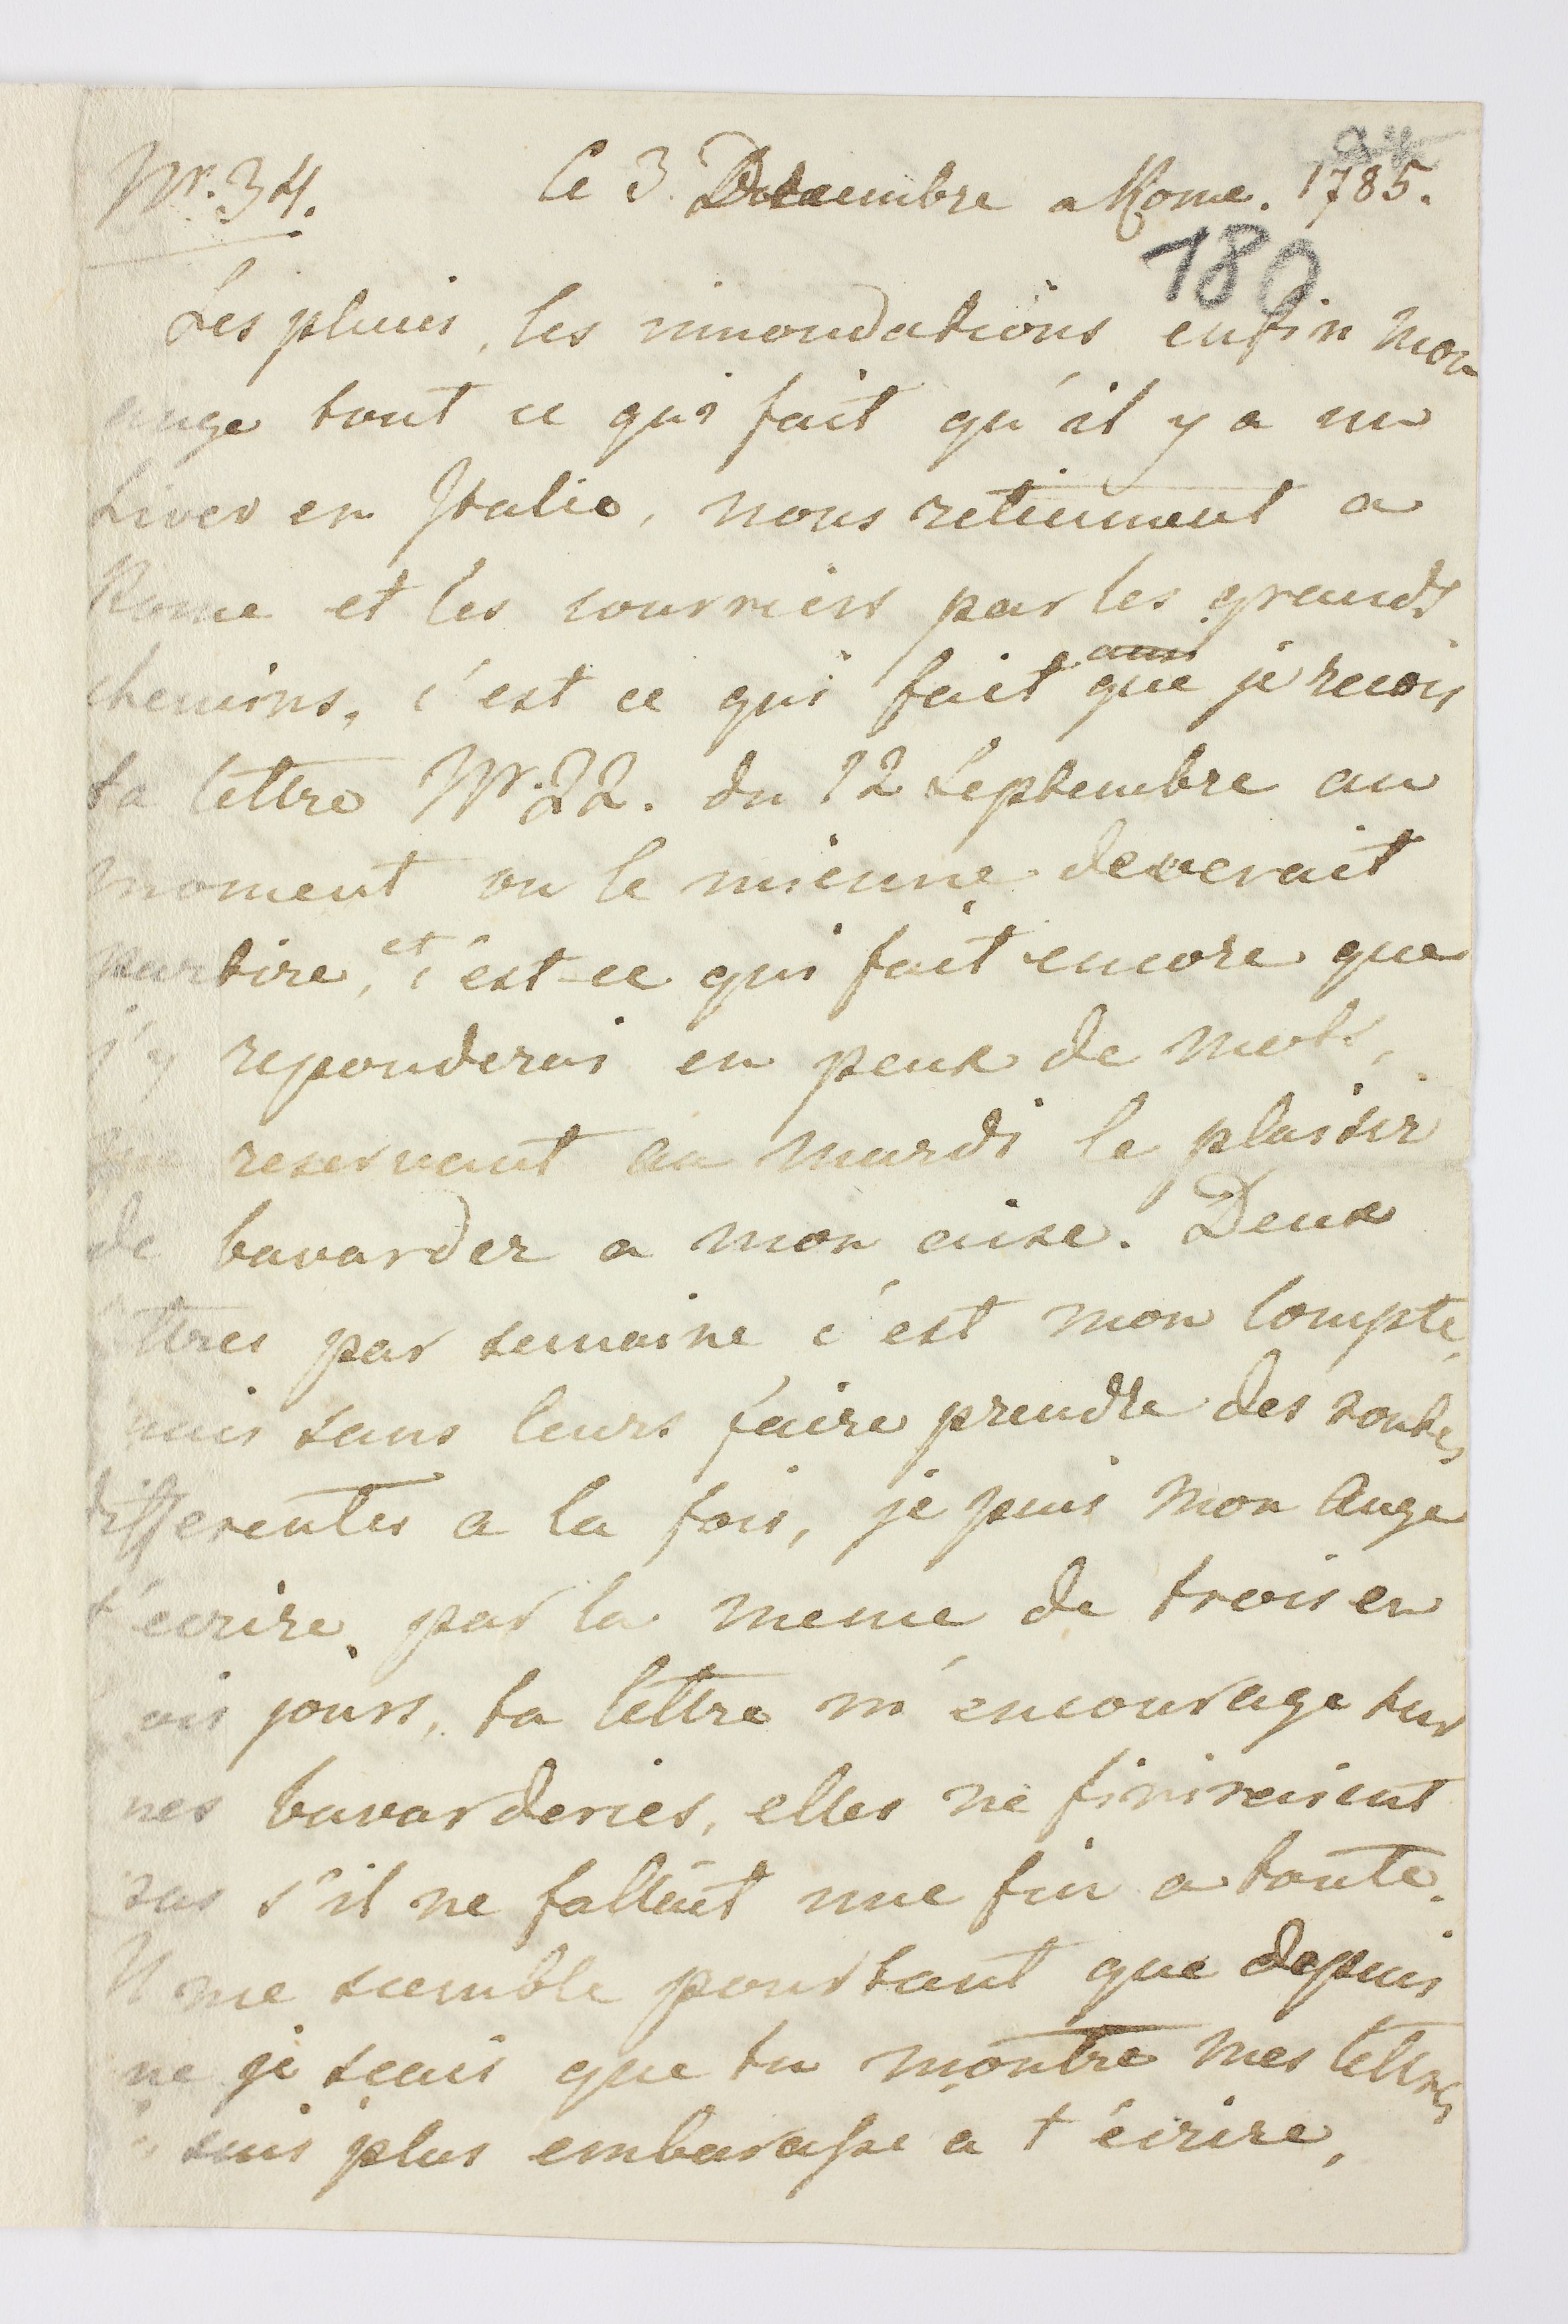 Nr. 34. Ce 3. Decembre a Rome. 1785.
180
Les pluies, les innondations enfin mon
ange tout ce qui fait qu'il y a un
hiver en Italie, nous retiennent a
Rome et les courriers par les grands
chemins, c'est ce qui fait que je recois
ta lettre Nr. 22. du 12 Septembre au
moment ou le mienne deverait
partire, et c'est ce qui fait encore que
j'y reponderai en peux de mots,
reservant au mardi le plaisir
de bavarder a mon aise. Deux
ttres par semaine c'est mon compte,
mais sans leurs faire prendre des routes
differentes a la fois, je puis mon Ange
t'ecrire par la meme de trois en
ois jours, ta lettre m'encourage sur
mes bavarderies, elles ne finiraient
pas s'il ne fallait une fin a toute.
Il me semble pourtant que depuis
ne je scais que tu montre mes lettres
je suis plus embarasse a t'écrire,